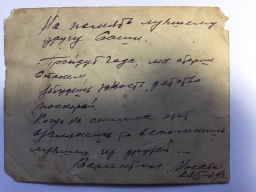 На память лучшему
другу Саше.
Пройдут года, мы старше
станем,
Забудешь юность, детство
Когда на снимок этот
взглянешь то вспомнишь
лучших из друзей...
Валентин Москва